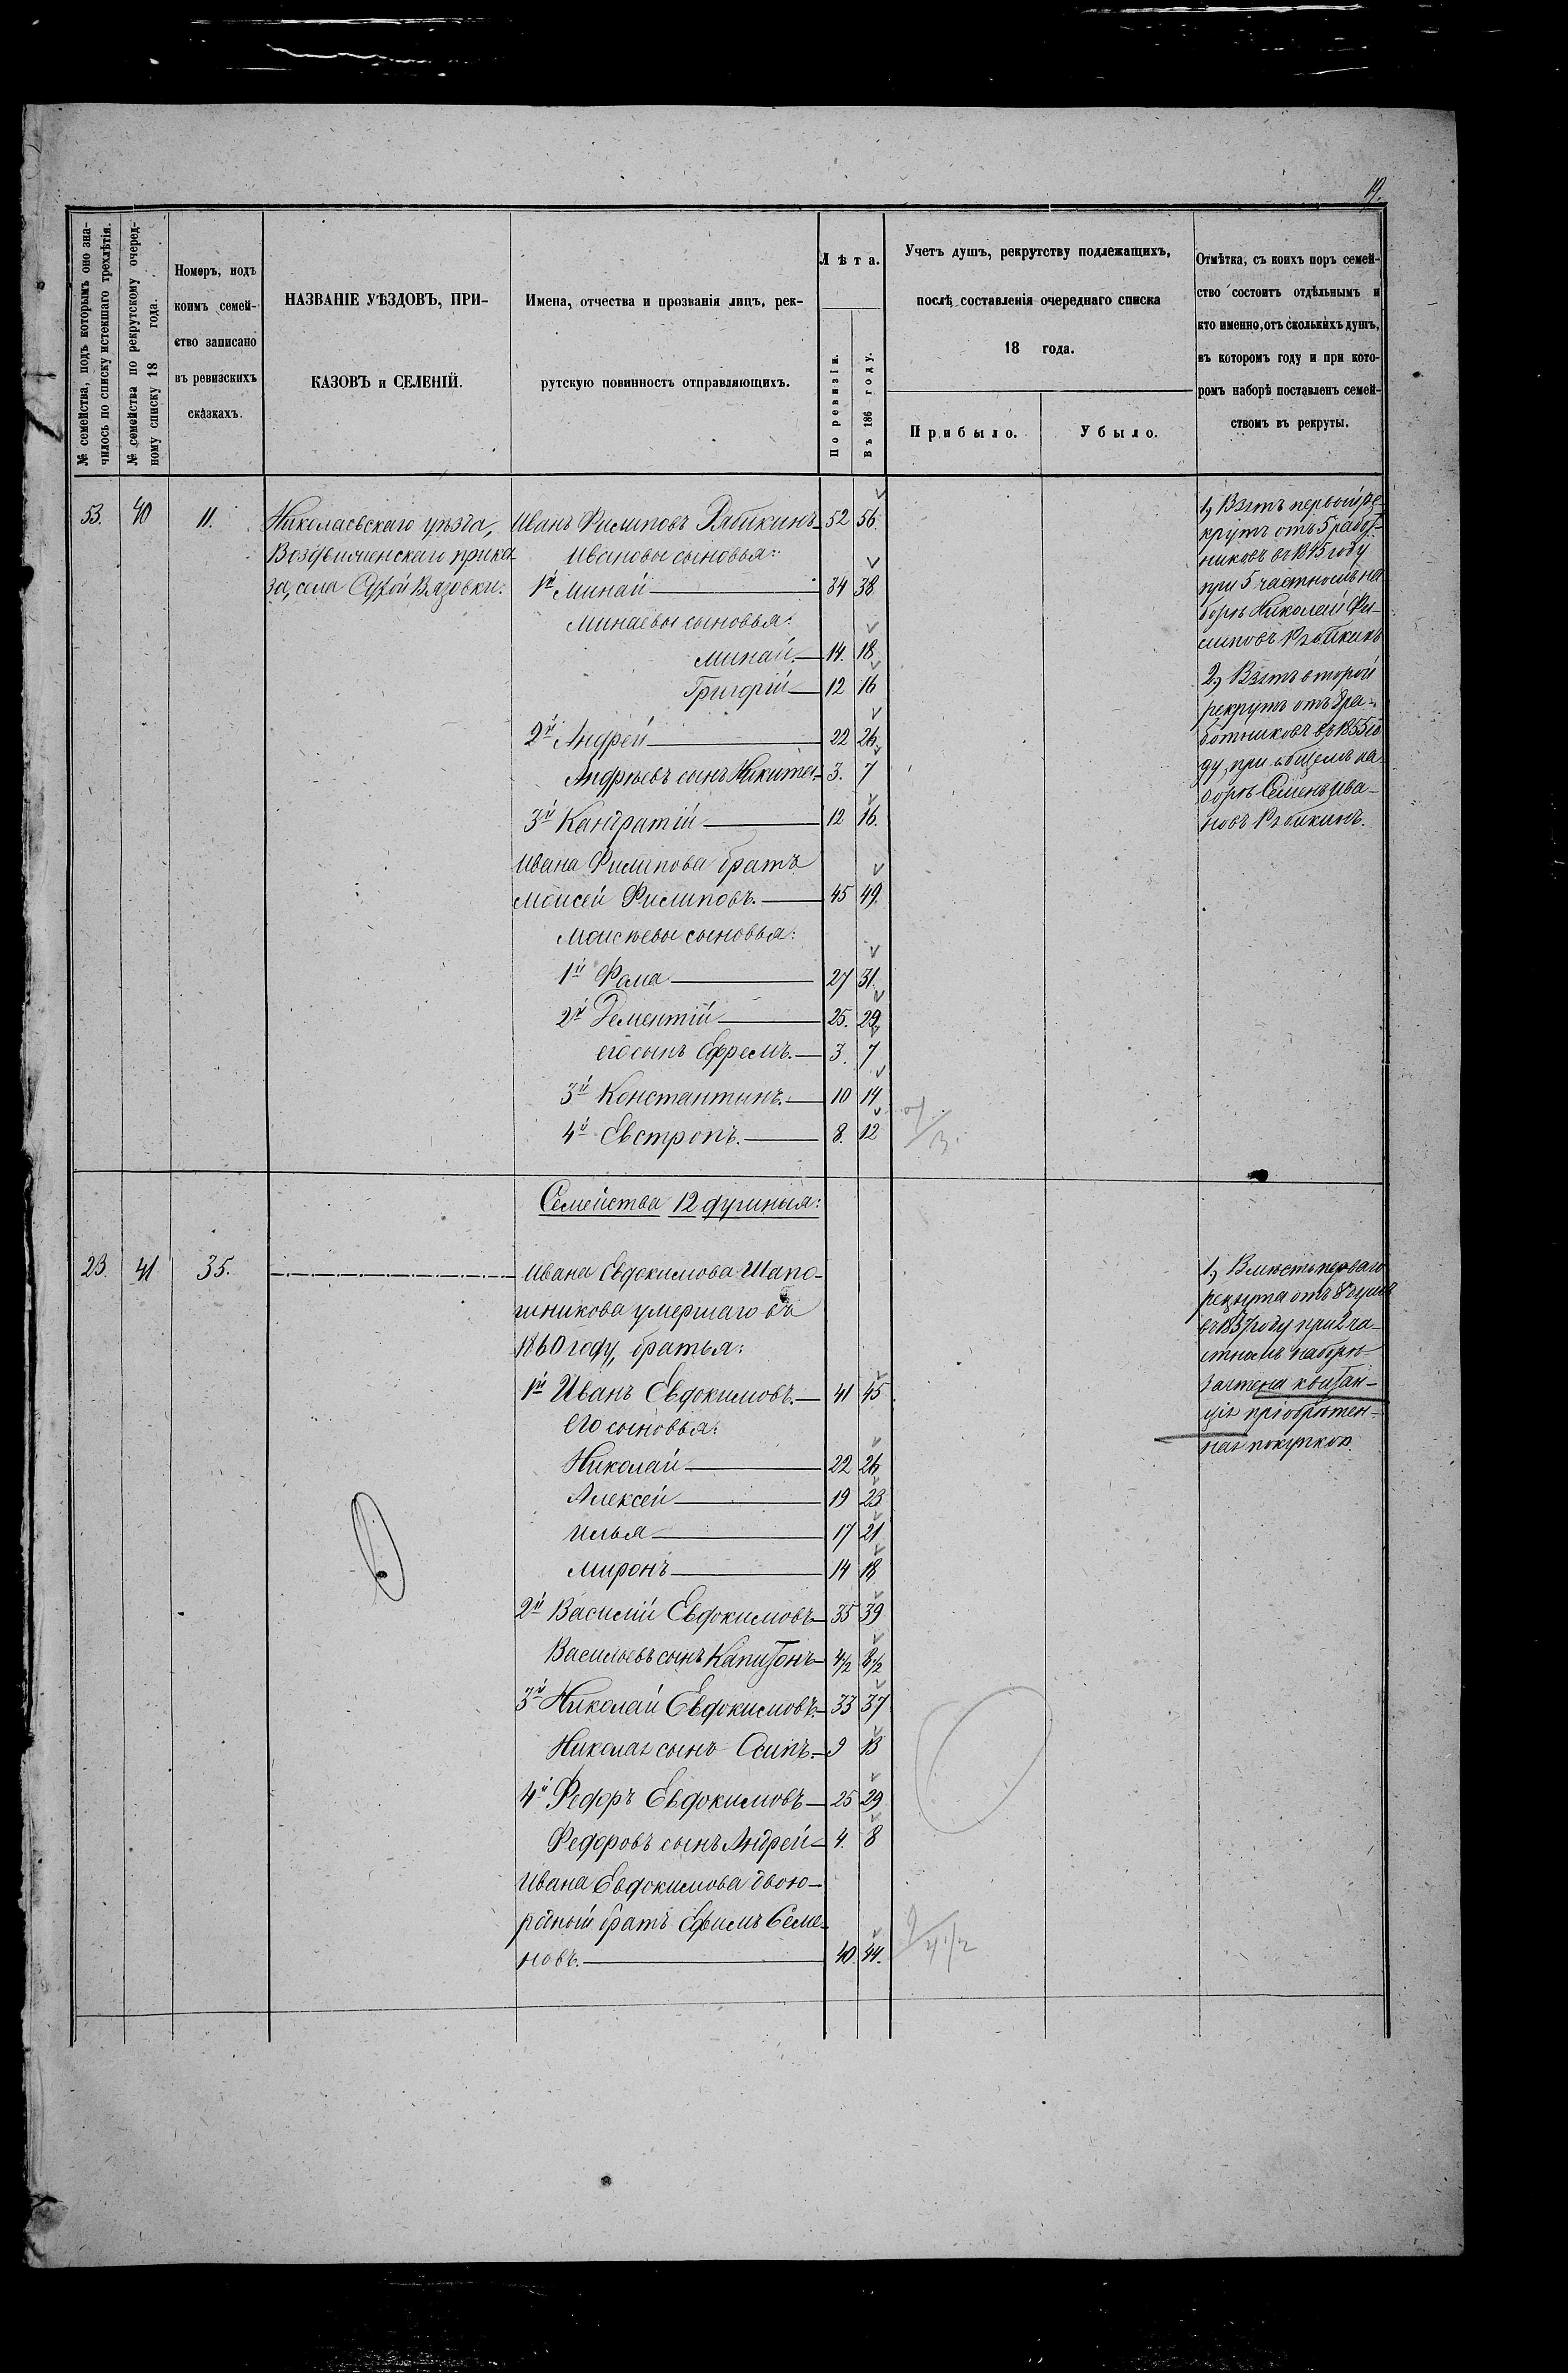 19.
№ семейства, подъ которымъ оно зна-
чилось по списку истекшаго трехлѣтія.
№ семейства по рекрутскому очеред-
ному списку 18 года.
Номеръ, подъ
коимъ семей-
ство записано
въ ревизскихъ
сказкахъ.
НАЗВАНІЕ УѢЗДОВЪ, ПРИ-
КАЗОВЪ и СЕЛЕНІЙ.
Имена, отчества и прозванія лицъ, рек-
рутскую повинность отправляющихъ.
Лѣта.
По ревизіи.
Въ 186 году.
Учетъ душъ, рекрутству подлежащихъ,
послѣ составленія очереднаго списка
18 года.
Прибыло.
Убыло.
Отмѣтка, съ коихъ поръ семей-
ство состоитъ отдѣльнымъ и
кто именно, отъ сколькихъ душъ,
въ которомъ году и при кото-
ромъ наборѣ поставленъ семей-
ствомъ въ рекруты.
53. 40 11.
Николаевскаго уѣзда,
Воздвиженскаго прика
за, села Сухой Вязовки.
Иванъ Филиповъ Рябикинъ 52 56
Ивановы сыновья:
1й Минай 34 38
Минаевы сыновья:
Минай. 14. 18
Григорій 12 16
2й Андрей 22 26
Андреевъ сынъ Никита 3. 7
3й Кандратій 12 16.
Ивана Филипова братъ
Моисей Филиповъ. 45 49.
Моисѣевы сыновья:
1й Фома 27 31.
2й Дементій 25. 29
его сынъ Ефремъ. 3. 7
3й Константинъ. 10 14
4й Евстропъ. 8. 12
1, Взятъ первой ре
крутъ отъ 5 работ-
никовъ въ 1845 году
при 5 частномъ на
борѣ Николай Фи-
липовъ Рябикинъ
2, Взятъ второй
рекрутъ отъ 8 ра-
ботниковъ въ 1855 го
ду, при общемъ на
борѣ Семенъ Ива-
новъ Рябикинъ.
Семейства 12 душныя:
23. 41 35.
Ивана Евдокимова Шапо-
шникова умершаго въ
1860 году, братья:
1й Иванъ Евдокимовъ. 41 45
его сыновья:
Николай 22 26
Алексей 19 23
Илья 17 21
Миронъ 14 18
2й Василій Евдокимовъ 35 39
Васильевъ сынъ Капитонъ 4/2 8 1/2
3й Николай Евдокимовъ. 33 37
Николая сынъ Осипъ. 9 13
4й Федоръ Евдокимовъ 25 29
Федоровъ сынъ Андрей 4. 8
Ивана Евдокимова двою-
родный братъ Ефимъ Семе-
новъ. 40. 44.
1, Вмѣсто перваго
рекрута отъ 8 душъ
въ 1837 году при 2 ча-
стномъ наборѣ
зачтена квитан-
ція пріобрѣтен-
ная покупкою.